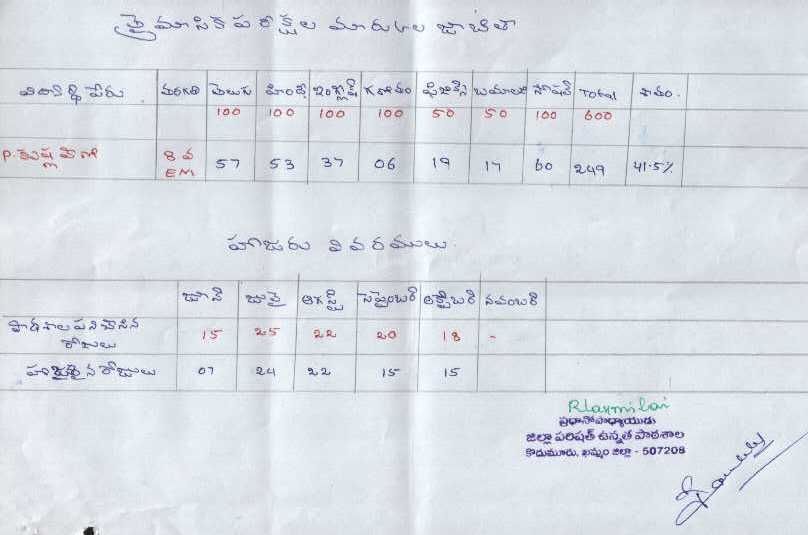 త్రైమాసిక పరీక్షల మార్కుల జాబితా
విద్యార్థి పేరు తరగతి తెలుగు హిందీ ఇంగ్లీష్ గణితం ఫిజిక్స్ బయాలజీ సోషల్ Total శాతం.
100 100 100 100 50 50 100 600
P. కృష్ణ 8 వ EM 57 53 37 06 19 17 60 249 41.5%
హాజరు వివరములు.
జూన్ జులై ఆగస్ట్ సెప్టెంబర్ అక్టోబర్ నవంబర్
పాఠశాల పనిచేసిన రోజులు 15 25 22 20 18 -
హాజరైన రోజులు 07 24 22 15 15
Rlaxmibai
ప్రధానోపాధ్యాయుడు
జిల్లా పరిషత్ ఉన్నత పాఠశాల
కొదుమూరు, ఖమ్మం జిల్లా - 507208